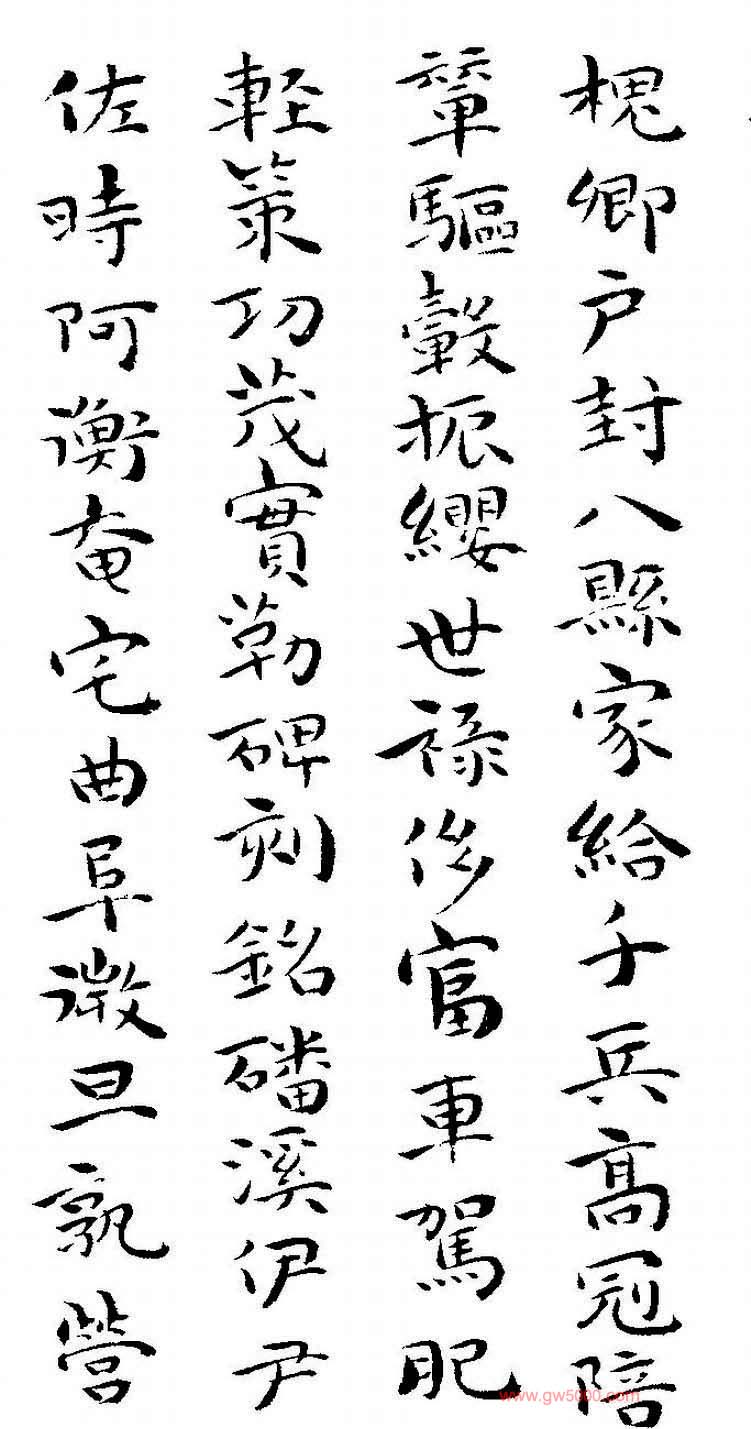 槐卿户封八縣家給千兵高冠陪
輦驅轂振纓世祿侈富車駕肥
輕策功茂實勒碑刻銘磻溪伊尹
佐時阿衡奄宅曲阜微旦孰營
www.gw5000.com